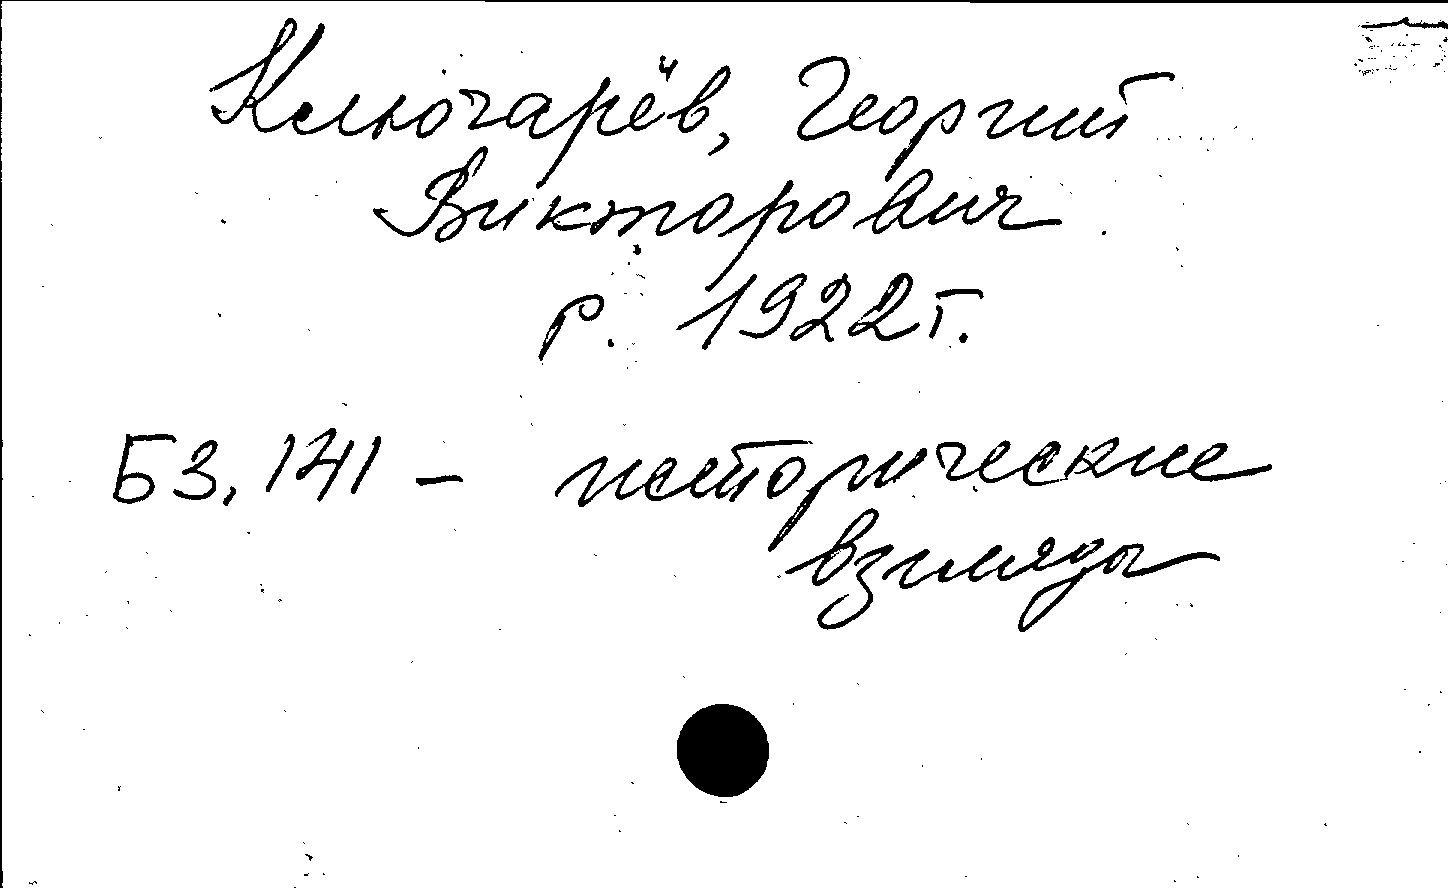 Ключарёв, Георгий
Викторович
р. 1922 г.
Б3,141 – исторические
взгляды